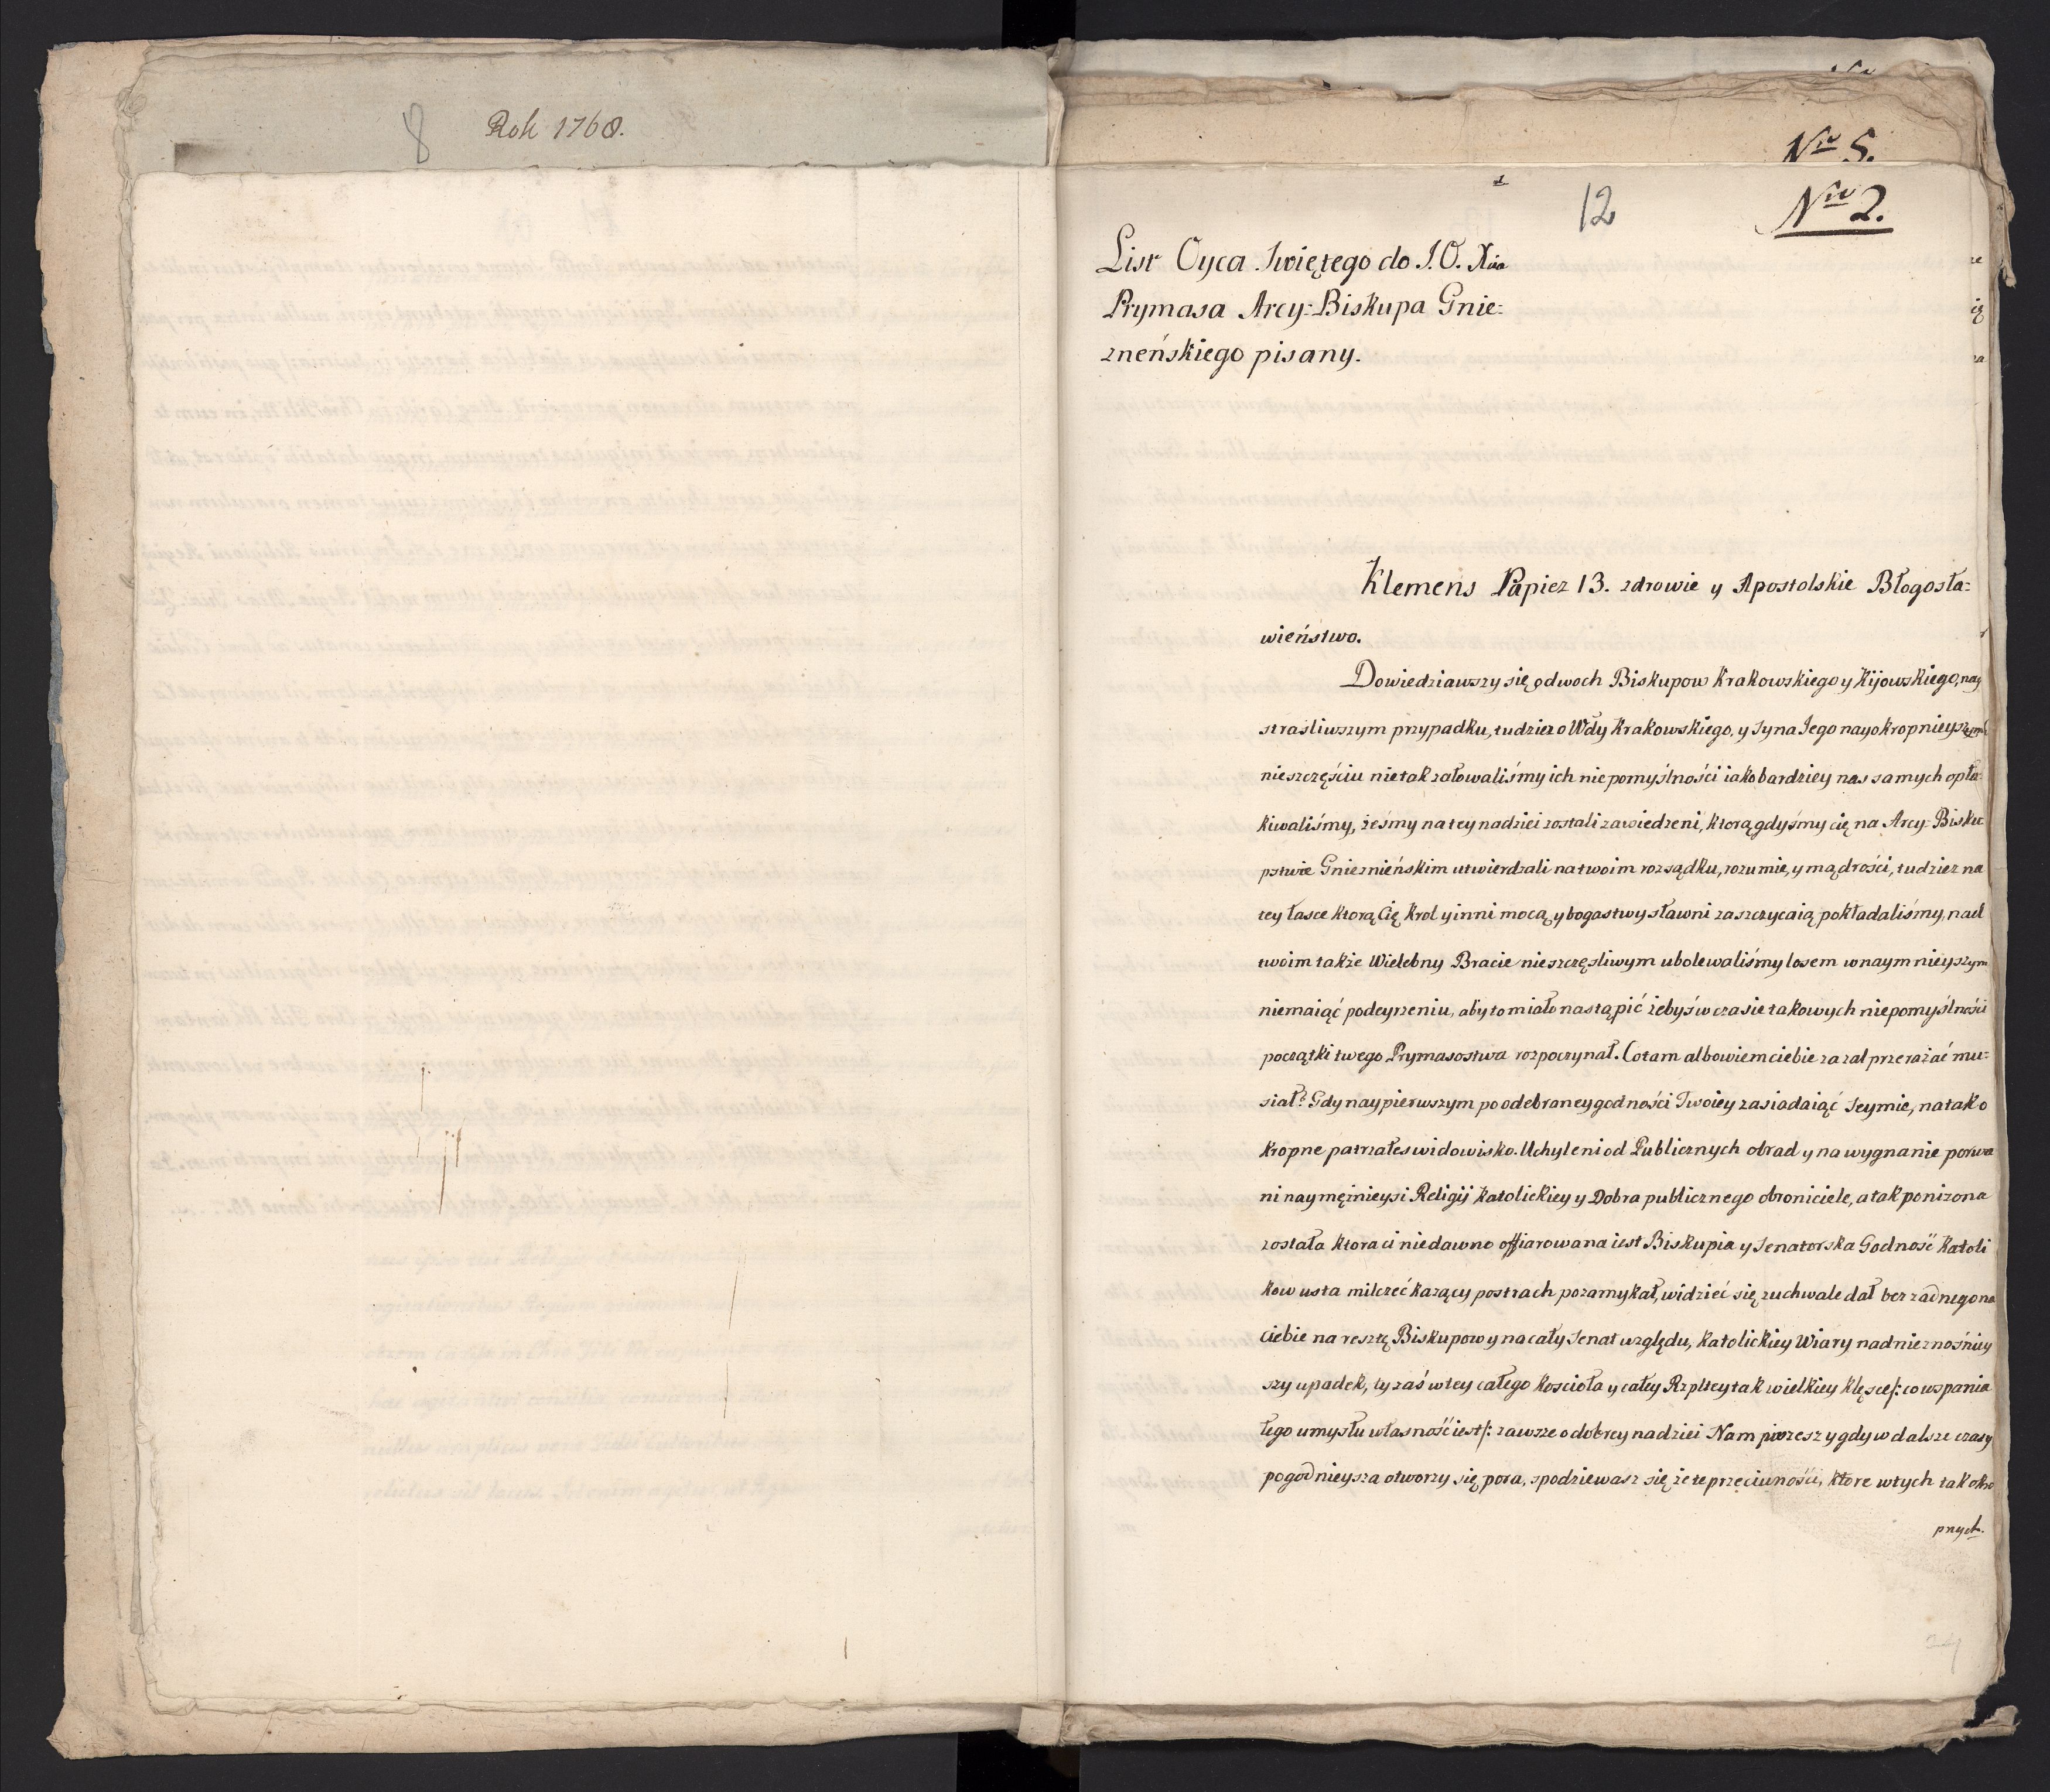 8 Rok 1768.
Nro 5.
12 Nro 2.
List Oyca Swiętego do J.O. Xcia
Prymasa Arcy-Biskupa Gnie-
zneńskiego pisany.
Klemens Papiez 13. zdrowie y Apostolskie Błogosła-
wieństwo.
Dowiedziawszy się o dwoch Biskupow Krakowskiego y Kijowskiego, nay
strasliwszym przypadku, tudziez o Wdy Krakowskiego, y Syna Jego nayokropnieyszym
nieszczęściu nie tak załowaliśmy ich niepomyślności iako bardziey nas samych opła-
kiwaliśmy, żeśmy na tey nadziei zostali zawiedzeni, ktorą gdyśmy cię na Arcy-Bisku
pstwie Gnieznieńskim utwierdzali na twoim rozsądku, rozumie, y mądrości, tudziez na
tey łasce ktorą Cię Krol y inni mocą y bogastwy sławni zaszczycaią pokładaliśmy, nad
twoim także Wielebny Bracie nieszczęsliwym ubolewaliśmy losem w naymnieyszym
niemaiąć podeyrzeniu, aby to miało nastąpić żebyś w czasie takowych niepomyślności
początki twego Prymasostwa rozpoczynał. Co tam albowiem ciebie za zal przerażać mu-
siał? Gdy naypierwszym po odebraney godności Twoiey zasiadaiąć Seymie, na tak o
kropne patrzałes widowisko. Uchyleni od Publicznych obrad y na wygnanie porwa
ni naymężnieysi Religij Katolickiey y Dobra publicznego obroniciele, a tak ponizona
została ktora ci niedawno offiarowana iest Biskupia y Senatorska Godność Katoli
kow usta milczeć kazący postrach pozamykał, widzieć się zuchwale dał bez zadnego na
ciebie na resztę Biskupow y na cały Senat względu, Katolickiey Wiary nadnieznośniey
szy upadek, ty zaś w tey całego Koscioła y całey Rzpltey tak wielkiey klęsce /: co wspania
łego umysłu własność iest :/ zawsze o dobrey nadziei Nam piszesz y gdy w dalsze czasy
pogodnieysza otworzy się pora, spodziewasz się że te przeciwności, ktore w tych tak okro
pnych.